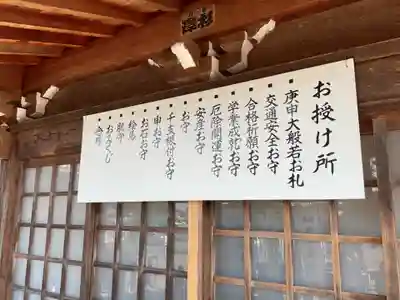 お授け所
庚申大般若お札
交通安全お守
合格祈願お守
学業成就お守
厄除開運お守
安産お守
お守
干支根付お守
申お守
お石お守
絵馬
おみくじ